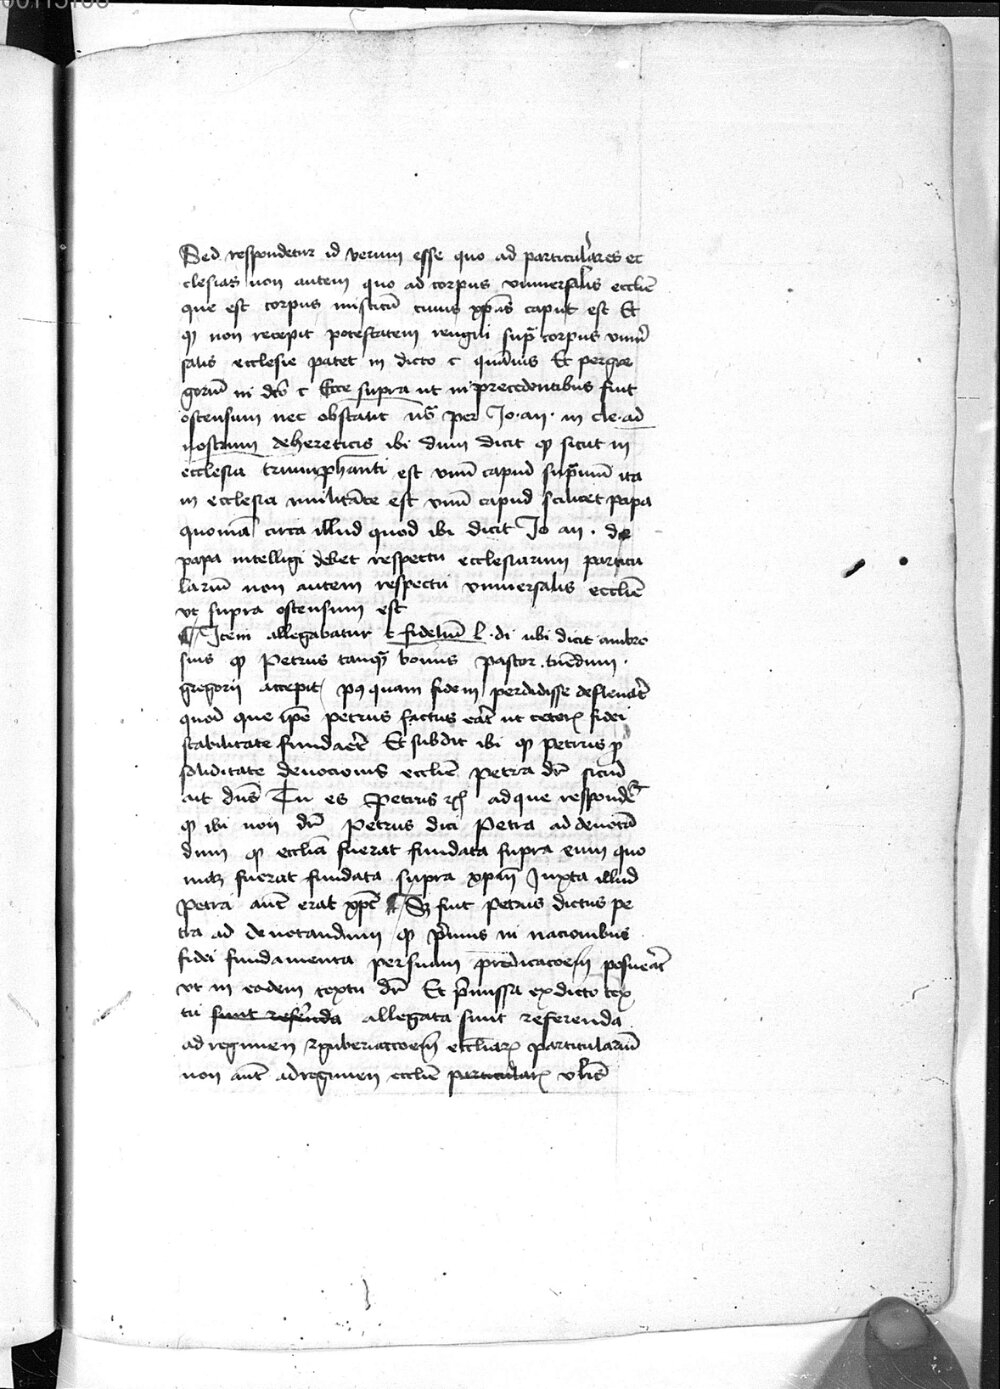 Sed respondetur id verum esse quo ad particulares ec
clesias non autem quo ad corpus universalis ecclie
que est corpus misticu cuius xpus caput est Et
qd non recepit potestatem regni supra corpus univer
salis ecclesie patet in dicto c quamvis Et per gre
gorium in dco c Ecce supra ut in precedentibus fuit
ostensum nec obstabit per Jo. an. in cle. ad
nostrum de hereticis ibi dum dicit qd sicut in
ecclesia triumphanti est unu capud supremu ita
in ecclesia militante est unu capud scilicet papa
quoniam circa illud quod ibi dicit Jo an. de
papa intelligi debet respectu ecclesiarum particu
larium non autem respectu universalis ecclie
ut supra ostensum est
Item allegabatur c fidelium l. di ubi dicit ambro
sius qd Petrus tamqua bonus pastor tuendum
gregem accepit pq quam fidem perdidisse
quod que ipe petrus factus erat ut ceteris fidei
stabilitate Et subdit ibi qd petrus p
soliditate devocionis ecclie petra dr sicud
ait dns Tu es Petrus ad que respondetur
qd ibi non dr Petrus dici Petra ad denotan
dum qd ecclia fuerat fundata supra eum quo
niam fuerat fundata supra xpum Juxta illud
Petra aut erat xps Sed fuit Petrus dictus pe
tra ad denotandum qd primus in nacionibus
fidei fundamenta per suam predicacoem posuerat
ut in eodem textu dr Et premissa ex dicto tex
tu sunt referenda allegata sunt referenda
ad regimen et gubernacoem eccliarum particularium
non aut ad regimen ecclie particularis ulis